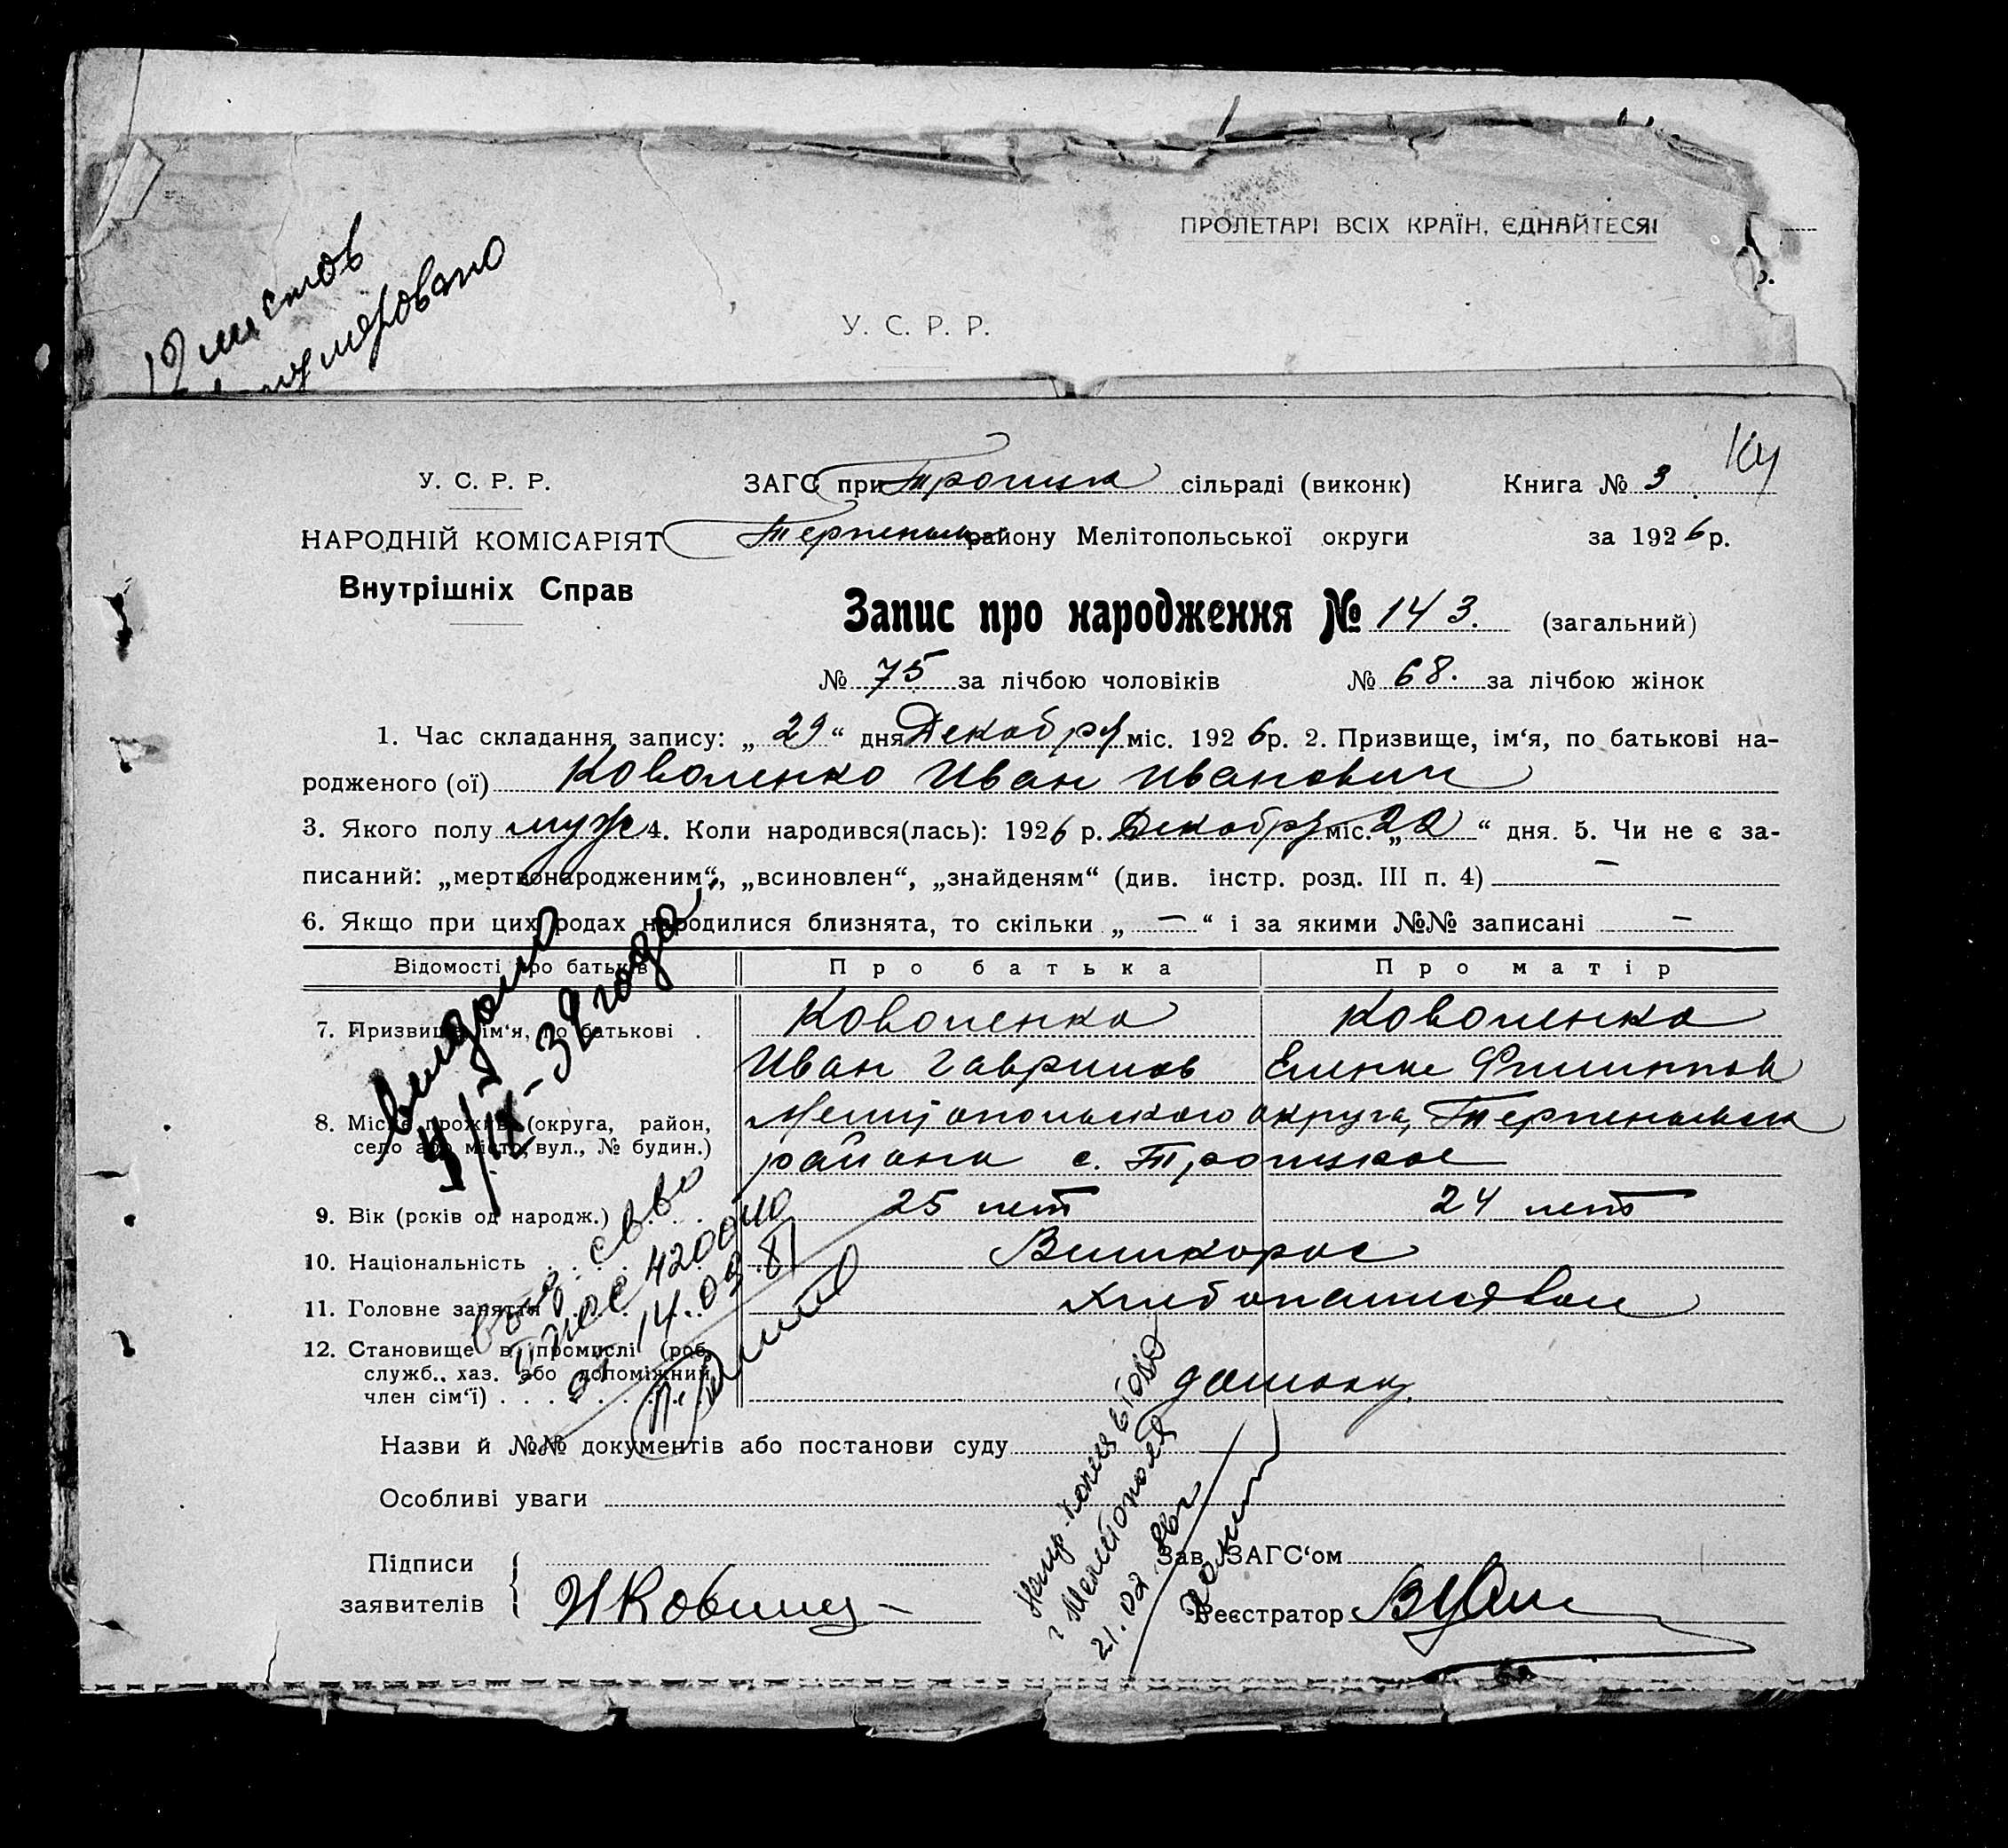 ПРОЛЕТАРІ ВСІХ КРАЇН, ЄДНАЙТЕСЯ!
У. С. Р. Р.
19 листов
нумеровано
У. С. Р. Р.
НАРОДНІЙ КОМІСАРІЯТ
Внутрішніх Справ
ЗАГС при Троицкá сільраді (виконк) Книга № 3
района Мелітопольської округи за 1926 р.
Запис про народження № 143. (загальний)
№ 75 за лічбою чоловіків № 68. за лічбою жінок
1. Час складання запису: „ 29 “ дня Декабря міс. 1926 р. 2. Призвище, ім‘я, по батькові на-
родженого (ої) Коваленко Иван Иванович
3. Якого полу муж 4. Коли народився(лась): 1926 р. Декабря міс. „ 22 “ дня. 5. Чи не є за-
писаний: „мертвонародженим“, „всиновлен“, „знайденям“ (див. інстр. розд. III п. 4) —
6. Якщо при цих родах народилися близнята, то скільки „ — “ і за якими №№ записані —
Відомості про батьків Про батька Про матір
7. Призвище, ім‘я, по батькові . Коваленко Коваленко
Иван Гаврилов Елена Филиппов
8. Місце прожив. (округа, район, Мелітопольского округа, Терпеньевск
село або місто, вул., № будин.) района с. Троицкое
9. Вік (років од народж.) 25 лет 24 лет
10. Національність
11. Головне заняття
12. Становище в промислі (роб.
служб., хаз. або допоміжний
член сім‘ї)
Назви й №№ документів або постанови суду
Особливі уваги
Підписи
заявителів
Зав. ЗАГС‘ом
Реєстратор
видано
4/IX-38 года
св-во
14.03.81
копия
г Мелитополя
21.02.86г